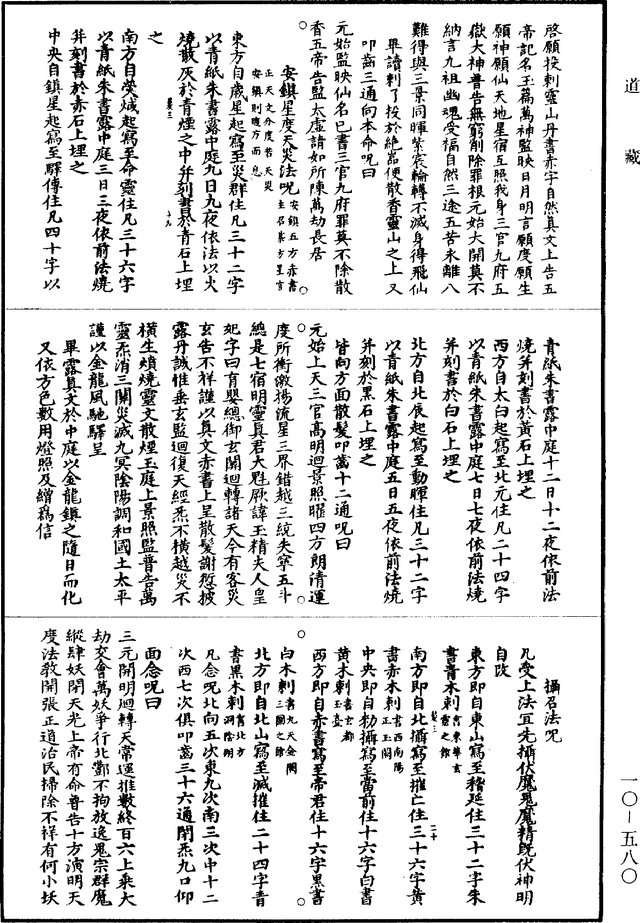 道藏
啓願投刺靈山丹書赤字自然真文上告五
帝記名玉篇萬神監映日月明言願度願生
願神願仙天地星宿互照我身三官九府五
嶽大神普告無窮削除罪根元始大開莫不
納言九祖幽魂受福自然三途五苦永離八
難得與三景同暉紫宸輪轉不滅身得飛仙
畢讀刺了投於絶巖便散香靈山之上又
叩齒三通向本命呪曰
元始監映仙名已書三官九府罪莫不除散
香五帝告監太虛請如所陳萬劫長居
安鎮星度天災法呪安鎮五方赤書主召某方星官
正天文分度若天災安鎮則隨方面息
東方自歲星起寫至災群住凡三十二字
以青紙朱書露中庭九日九夜依法以火
燒散灰於青煙之中并刻書於青石上埋
之
南方自熒惑起寫至命靈住凡三十六字
以青紙朱書露中庭三日三夜依前法燒
并刻書於赤石上埋之
中央自鎮星起寫至驛傳住凡四十字以
青紙朱書露中庭十二日十二夜依前法
燒并刻書於黃石上埋之
西方自太白起寫至北元住凡二十四字
以青紙朱書露中庭七日七夜依前法燒
并刻書於白石上埋之
北方自北辰起寫至動暉住凡三十二字
以青紙朱書露中庭五日五夜依前法燒
并刻於黑石上埋之
皆向方面散髮叩齒十二通呪曰
元始上天三官高明迴景照曜四方朗清運
度所衝激揚流星三界錯越三統失寧五斗
總是七宿明靈真君大魁厥諱玉精夫人皇
妃字曰育嬰總御玄關迴轉諸天今有客災
玄告不祥謹以真文赤書上呈散髮謝愆披
露丹誠惟垂玄監迴復天經炁不橫越災不
橫生煩燒靈文散煙玉庭上景照監普告萬
靈炁消三關災滅九冥陰陽調和國土太平
謹以金龍風馳驛呈
畢露真文於中庭以金龍鎮之隨日而化
又依方色數用燈照及繒爲信
攝召法呪
凡受上法宜先攝伏魔鬼魔精既伏神明
自改
東方即自東山寫至稽延住三十二字朱
書青木刺
南方即自北攝寫至摧亡住三十六字黃
書赤木刺書西南陽正玉闕
中央即自勑攝寫至當前住十六字白書
黃木刺書玄都玉臺
西方即自赤書寫至帝君住十六字黑書
白木刺書九天金闕三圖之館
北方即自北山寫至滅摧住二十四字青
書黑木刺書北方洞陰朔
凡念呪北向五次東九次南三次中十二
次西七次俱叩齒三十六通閉炁九口仰
面念呪曰
三元開明迴轉天常運推數終百六上乘大
劫交會萬妖爭行北酆不拘放逸鬼宗群魔
縱肆妖閉天光上帝有命普告十方演明天
度法教開張正道治民掃除不祥有何小妖
一〇—五八〇